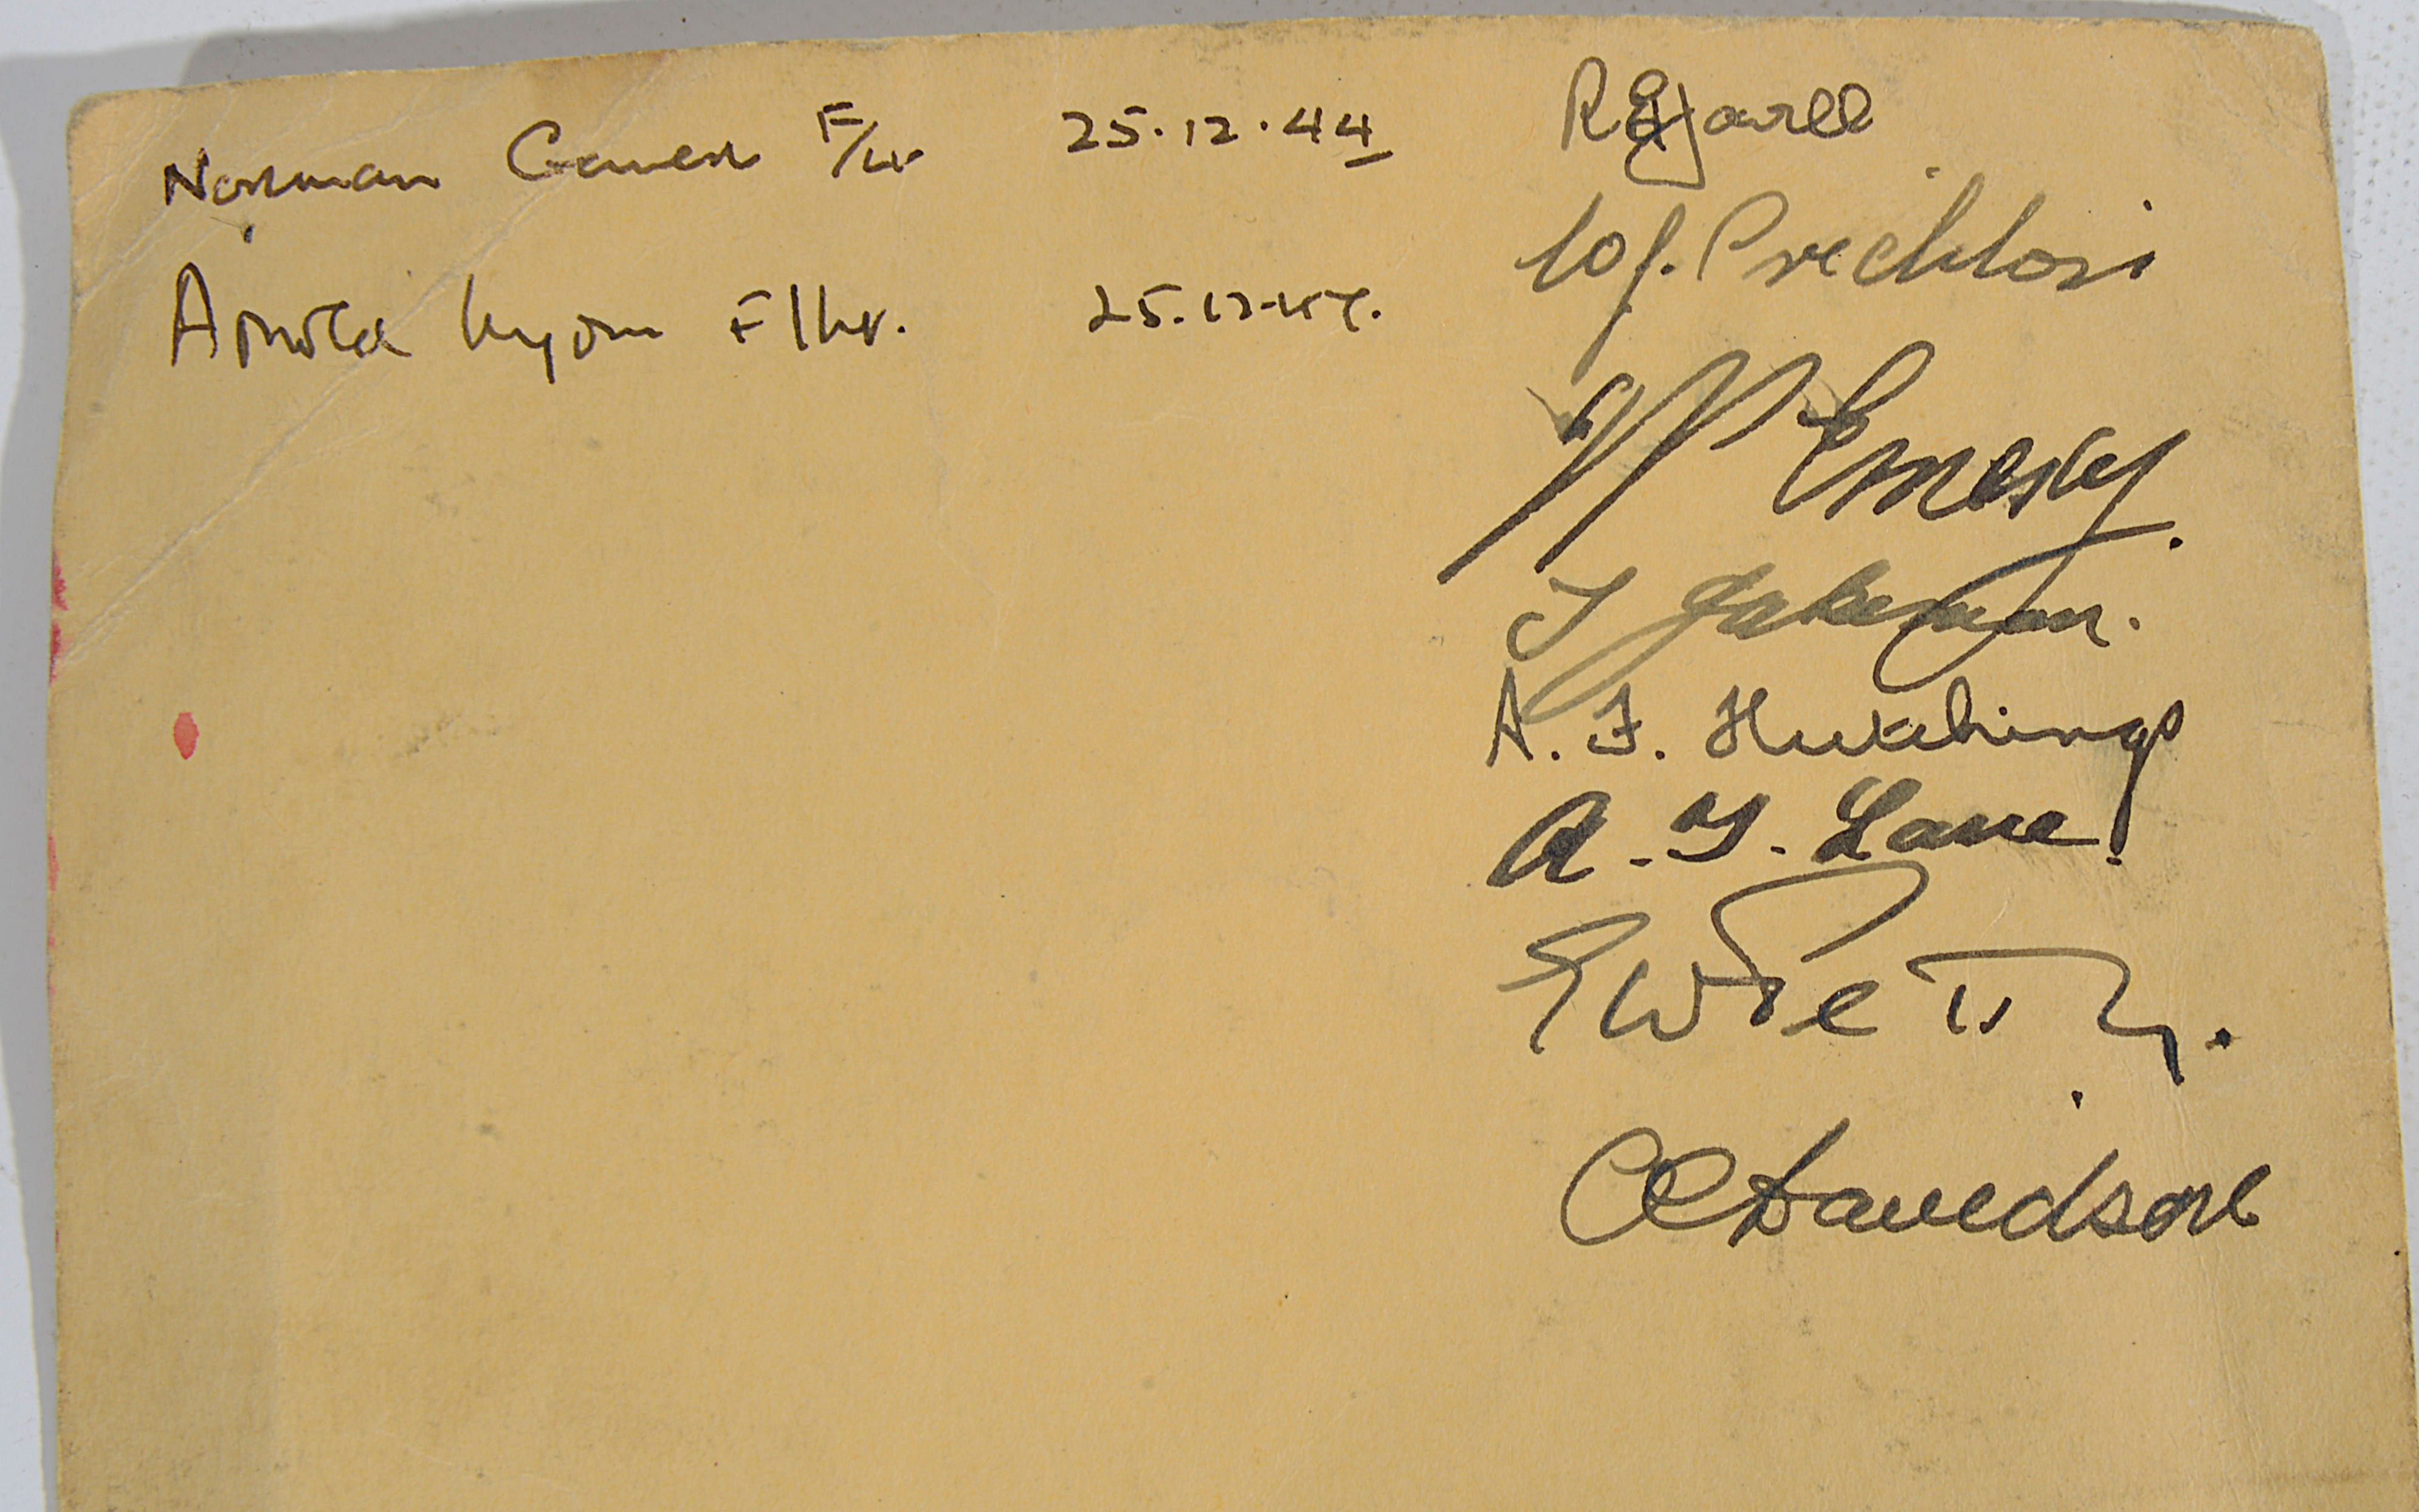 Norman Gower F/Lt. 25.12.44
Arnold Lyon F/Lt. 25.12.44.
W. J. Prechlori
Emery.
J Jakeman.
A. J. Hutchings
A. G. Lane.
C E Davidson